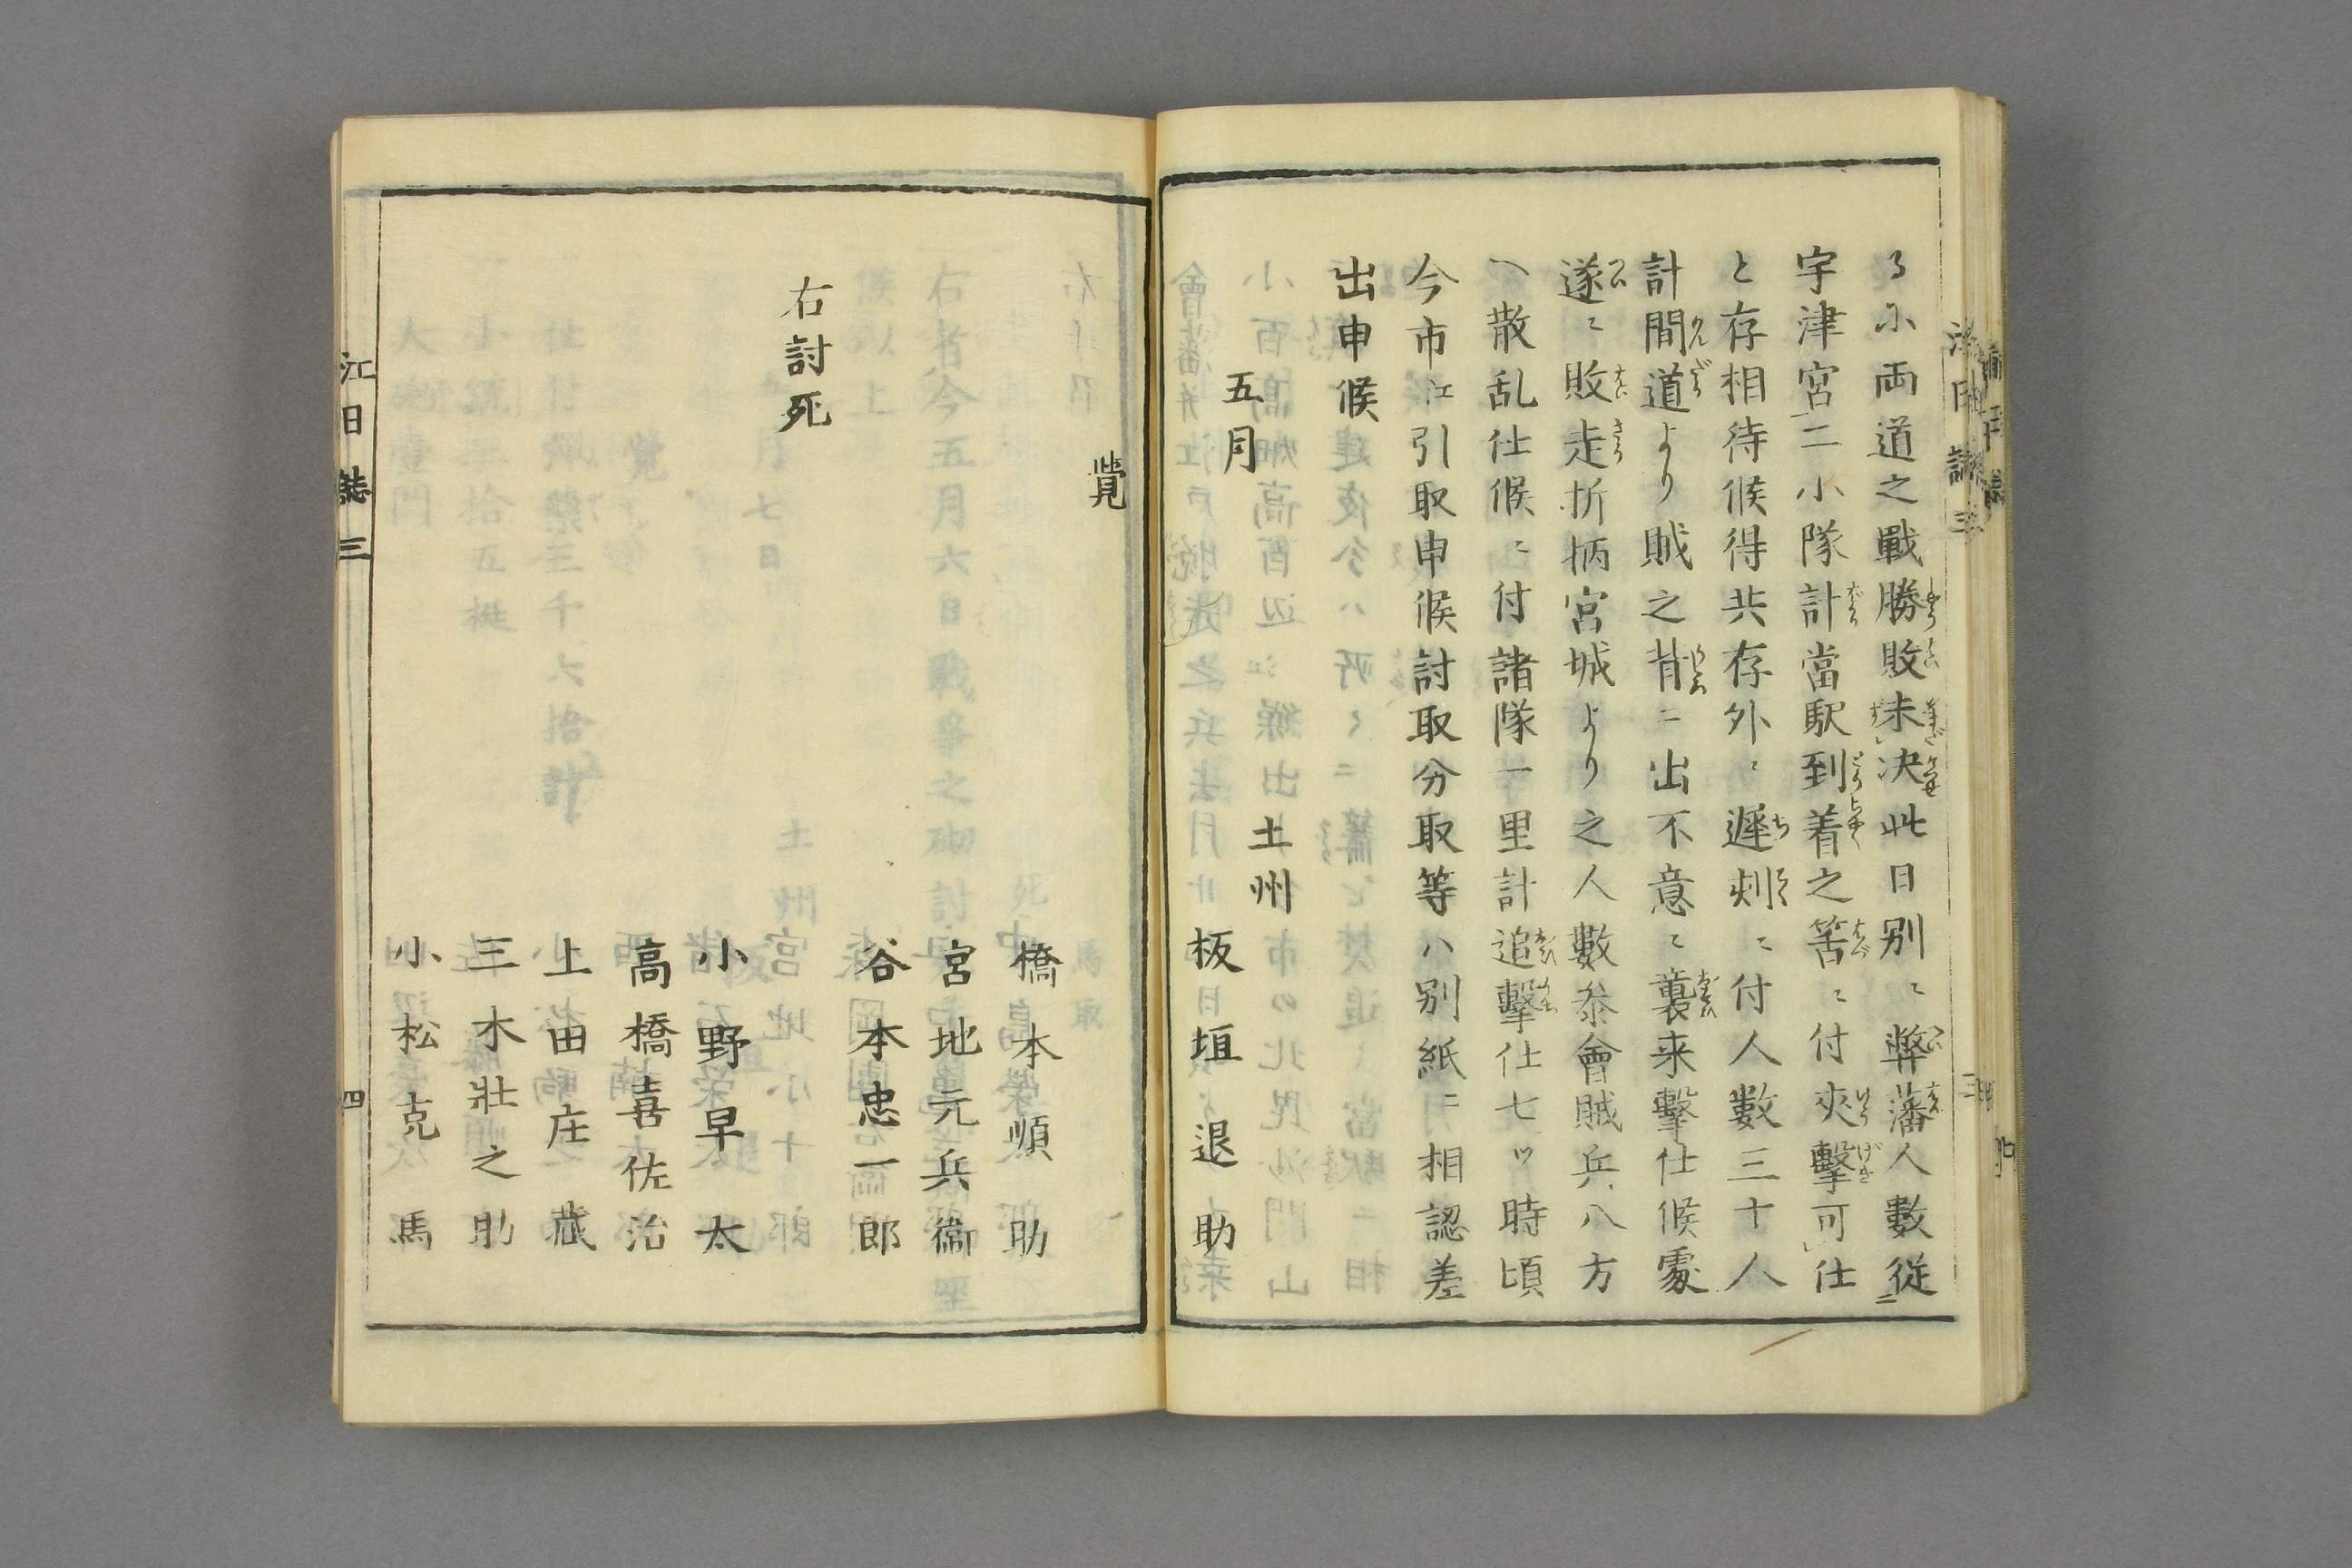 る小両道之戰勝敗未決此日別ニ弊藩人數従
宇津宮二小隊計當駅到着之筈ニ付夾擊可仕
と存相待候得共存外ニ遲刻ニ付人數三十人
計間道より賊之背ニ出不意ニ襲来擊仕候處
遂ニ敗走折柄宮城より之人數叅會賊兵八方
へ散乱仕候ニ付諸隊一里計追擊仕七ツ時頃
今市江引取申候討取分取等ハ別紙ニ相認差
出申候
五月
土州
板垣退助
覺
橋本順助
宮地元兵衞
谷本忠一郎
右討死
小野早太
高橋喜佐治
上田庄蔵
三木壯之助
小松克馬
江日誌三
四